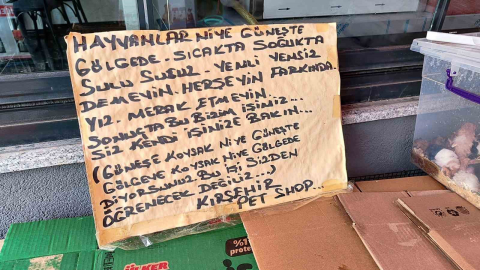 HAYVANLAR NİYE GÜNEŞTE
GÖLGEDE - SICAKTA SOĞUKTA
SULU SUSUZ - YEMLİ YEMSİZ
DEMEYİN. HERŞEYİN FARKINDA
YIZ. MERAK ETMEYİN.
SONUÇTA BU BİZİM İŞİMİZ...
SİZ KENDİ İŞİNİZE BAKIN...
(GÜNEŞE KOYSAK NİYE GÜNEŞTE
GÖLGEYE KOYSAK NİYE GÖLGEDE
DİYORSUNUZ BU İŞİ SİZDEN
ÖĞRENECEK DEĞİLİZ...)
KIRŞEHİR
PET SHOP...
ÜLKER
%1
prote